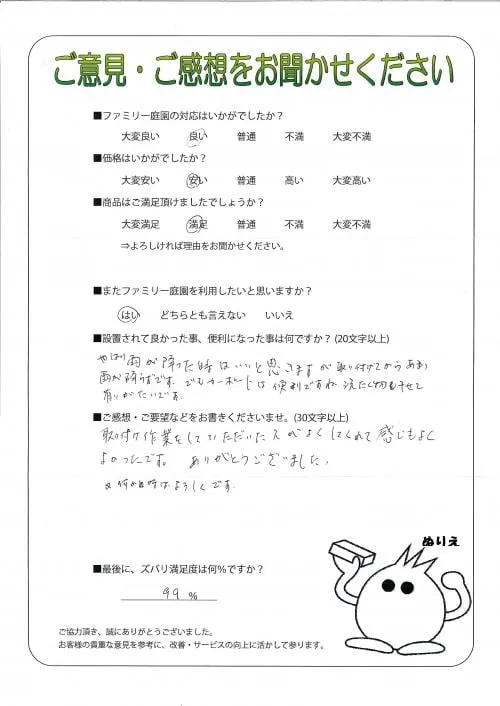 ご意見・ご感想をお聞かせください
■ファミリー庭園の対応はいかがでしたか?
大変良い 良い 普通 不満 大変不満
■価格はいかがでしたか?
大変安い 安い 普通 高い 大変高い
■商品はご満足頂けましたでしょうか?
大変満足 満足 普通 不満 大変不満
⇒よろしければ理由をお聞かせください。
■またファミリー庭園を利用したいと思いますか?
はい どちらとも言えない いいえ
■設置されて良かった事、便利になった事は何ですか? (20文字以上)
やはり雨が降った時はいいと思いますが取り付けてからあまり
雨が降らずです。でもカーポートは便利ですね
有りがたいです。
■ご感想・ご要望などをお書きくださいませ。(30文字以上)
取り付け作業をしていただいた人がよくしてくれて感じもよく
よかったです。ありがとうございました。
又何か有時はよろしくです。
ぬりえ
■最後に、ズバリ満足度は何%ですか?
99 %
ご協力頂き、誠にありがとうございました。
お客様の貴重な意見を参考に、改善・サービスの向上に活かして参ります。